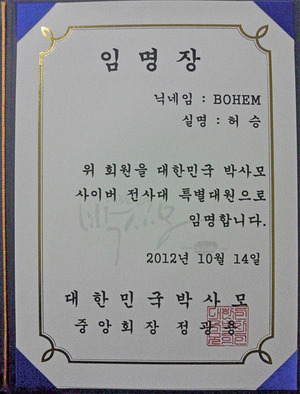 임명장
닉네임 : BOHEM
실명 : 허 승
위 회원을 대한민국 박사모
사이버 전사대 특별대원으로
임명합니다.
2012년 10월 14일
대한민국박사모
중앙회장 정광용